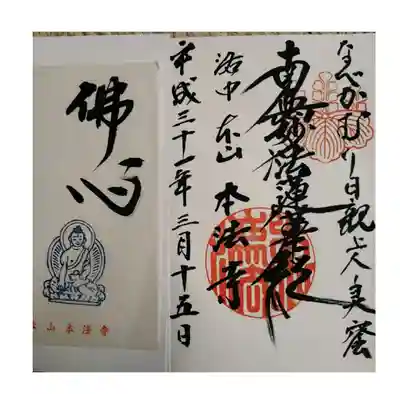 なべかむり日親上人
南無妙法蓮華経
洛中 本山 本法寺
平成三十一年三月十五日
佛心
山本法寺